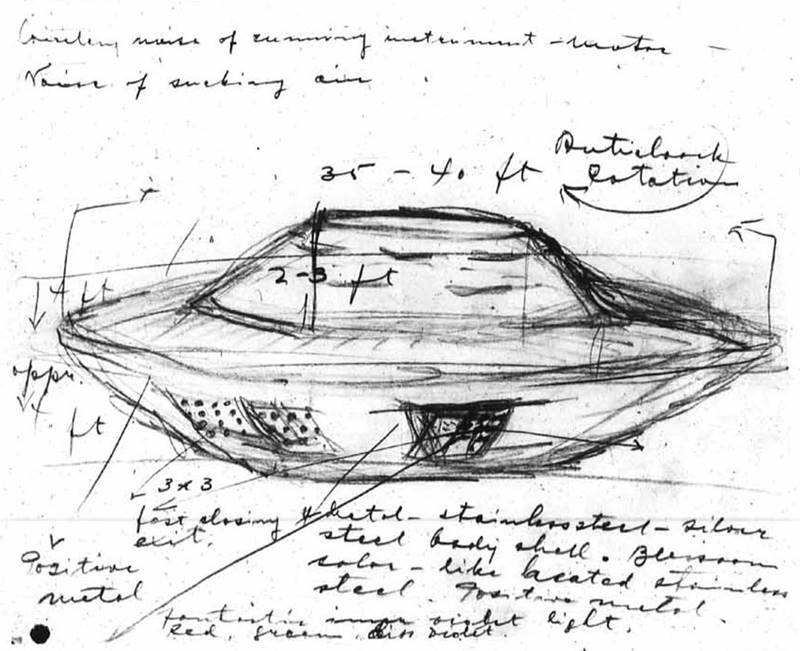 noise of running instrument - motor -
Noise of sucking air
35 - 40 ft
Anticlock
rotation
2-3 ft
4 ft
appr.
4 ft
3x3
fast closing
exit
Positive
metal
Metal - stainless steel - silver
steel body shell. Blossom
color - like heated stainless
steel. Positive metal.
fantastic inner violet light.
Red, green, violet.